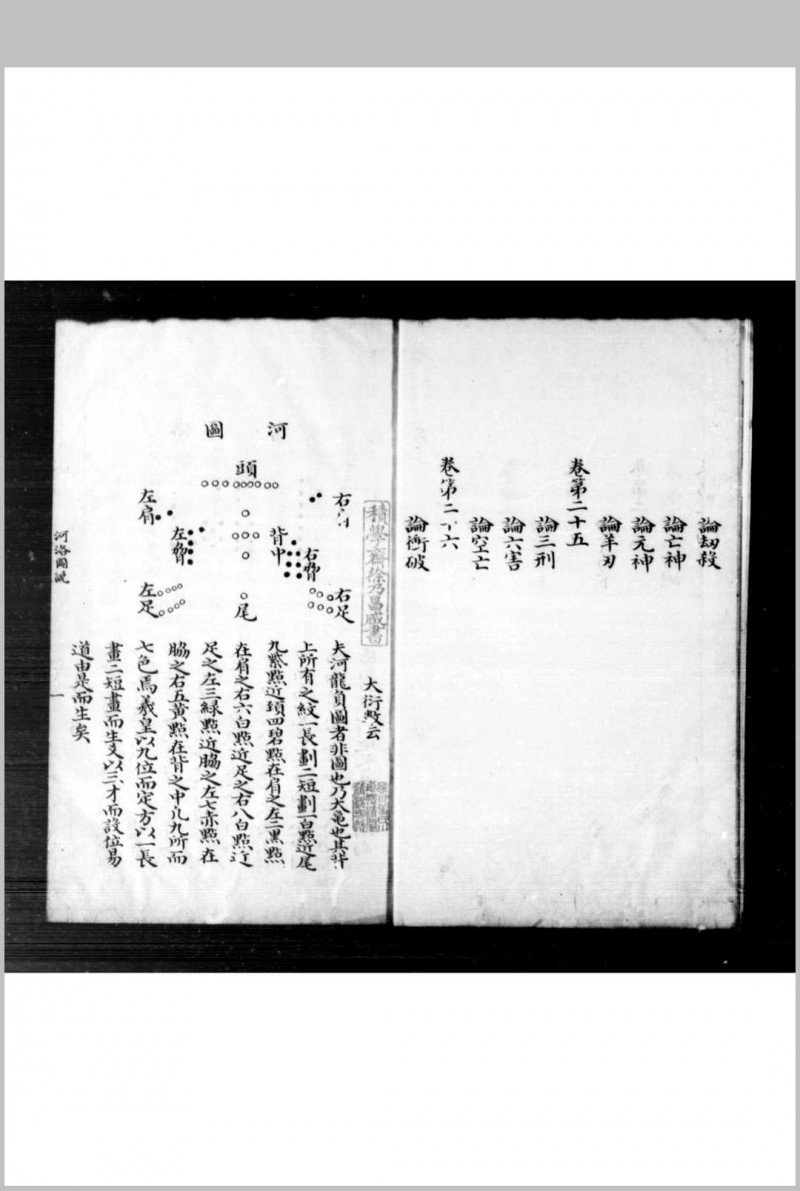 論刼殺
論亡神
論元神
論羊刃
卷第二十五
論三刑
論六害
論空亡
卷第二十六
論衝破
積學齋徐乃昌藏書
大衍數云
河圖
頭
右
右脅
右足
背中
尾
左肩
左脅
左足
大河龍負圖者非圖也乃大龜也其背
上所有之紋一長劃二短劃一白點近尾
九紫點近頭四碧點在肩之左二黑點
在肩之右六白點近足之右八白點近
足之左三緑點近脇之左七赤點在
脇之右五黃點在背之中凢九所而
七色焉羲皇以九位而定方以一長
畫二短畫而生爻以三才而設位易
道由是而生矣
河洛圖說
一